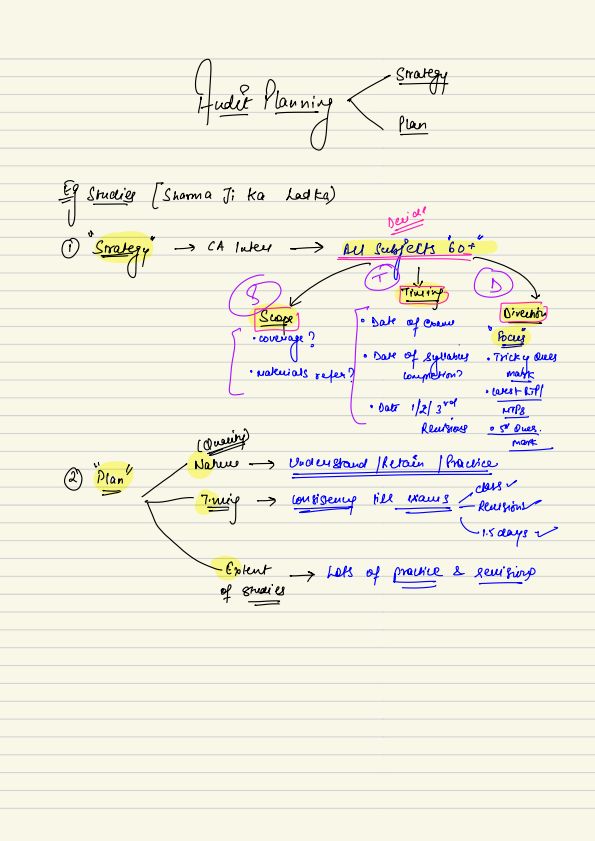 Strategy
Audit Planning
Plan
Eg Studies [Sharma Ji Ka Ladka)
Decide
① "Strategy" → CA Inter → All Subjects "60+"
S T D
Scope Timing Direction
"Focus"
• coverage?
• Materials refer?
• Date of Exams
• Date of Syllabus completion?
• Date 1/2/3rd Revisions
• Tricky Ques mark
• Latest RTP/
MTPs
• Ques. mark
② "Plan"
(Quality)
Nature → Understand /Retain /Practice
Timing → Consistency till exams
class ✓
Revisions ✓
1.5 days ✓
Extent of studies → Lots of practice & revisions